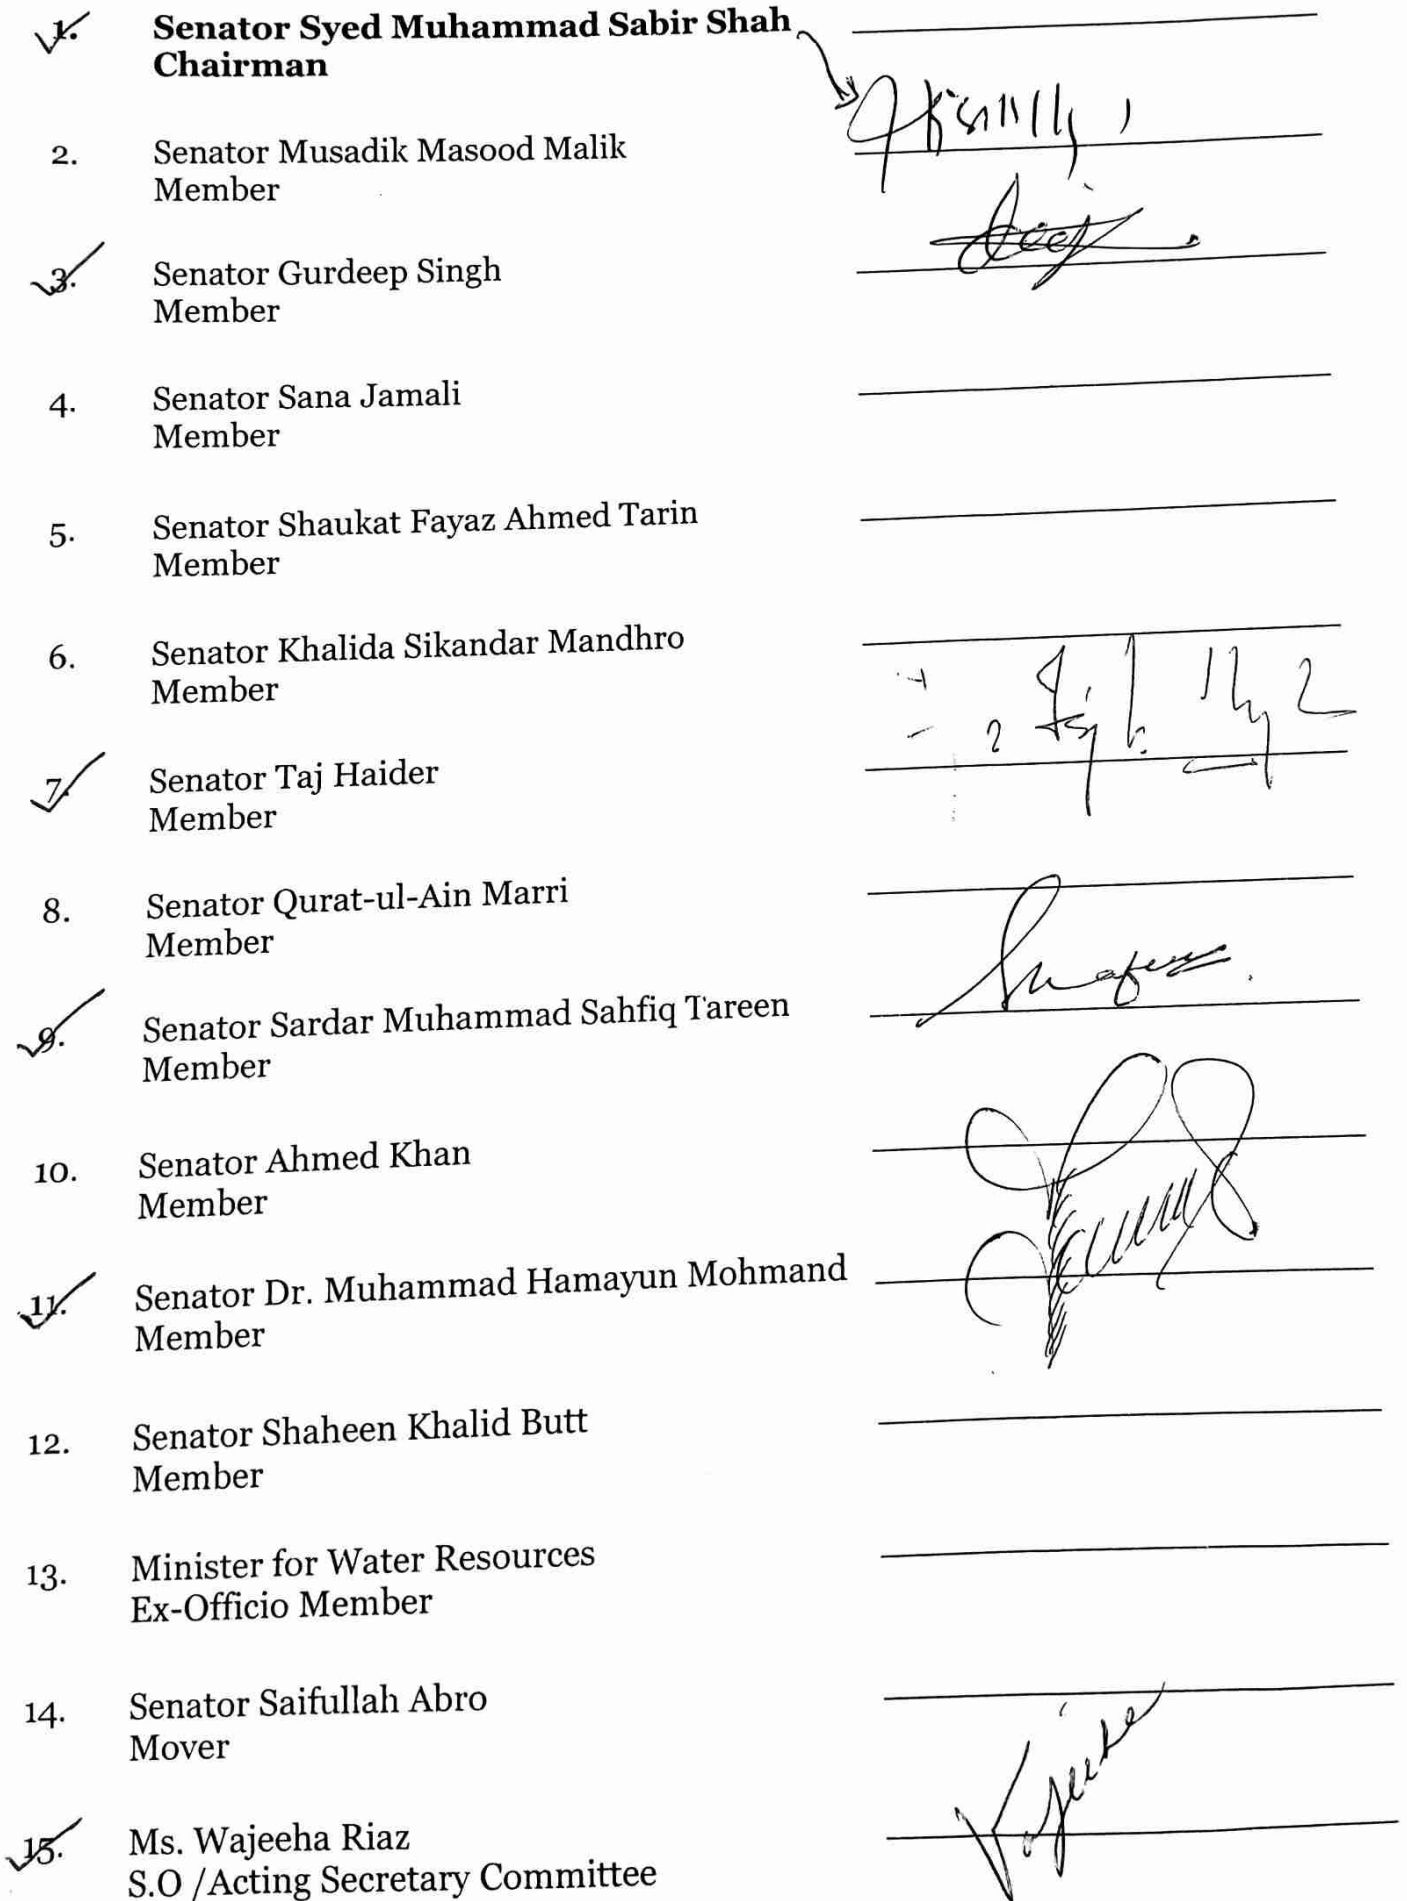 1. Senator Syed Muhammad Sabir Shah
Chairman
2. Senator Musadik Masood Malik
Member
3. Senator Gurdeep Singh
Member
4. Senator Sana Jamali
Member
5. Senator Shaukat Fayaz Ahmed Tarin
Member
6. Senator Khalida Sikandar Mandhro
Member
7. Senator Taj Haider
Member
8. Senator Qurat-ul-Ain Marri
Member
9. Senator Sardar Muhammad Sahfiq Tareen
Member
10. Senator Ahmed Khan
Member
11. Senator Dr. Muhammad Hamayun Mohmand
Member
12. Senator Shaheen Khalid Butt
Member
13. Minister for Water Resources
Ex-Officio Member
14. Senator Saifullah Abro
Mover
15. Ms. Wajeeha Riaz
S.O /Acting Secretary Committee